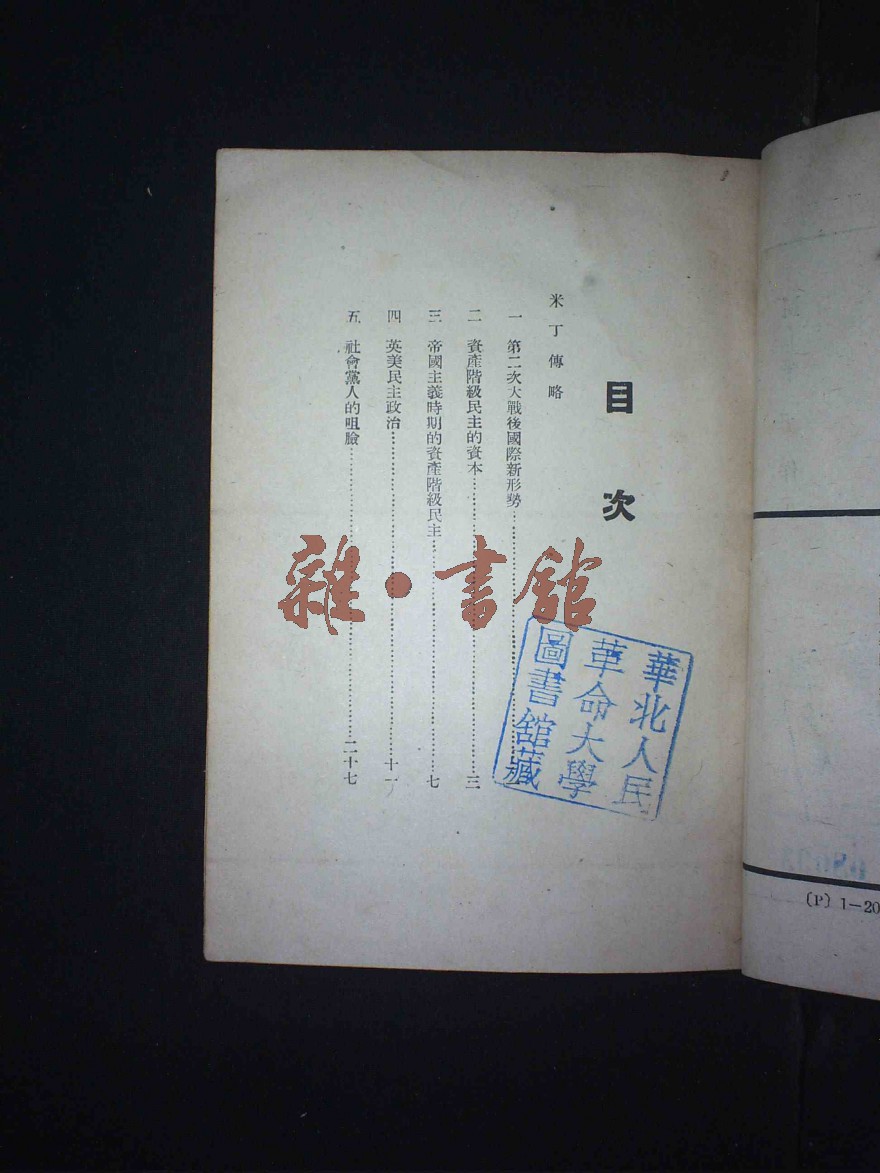 目次
米丁傳略
一　第二次大戰後國際新形勢
二　資產階級民主的資本……三
三　帝國主義時期的資產階級民主……七
四　英美民主政治……十一
五　社會黨人的咀臉……二十七
華北人民
革命大學
圖書館藏
雜·書館
(P) 1—20